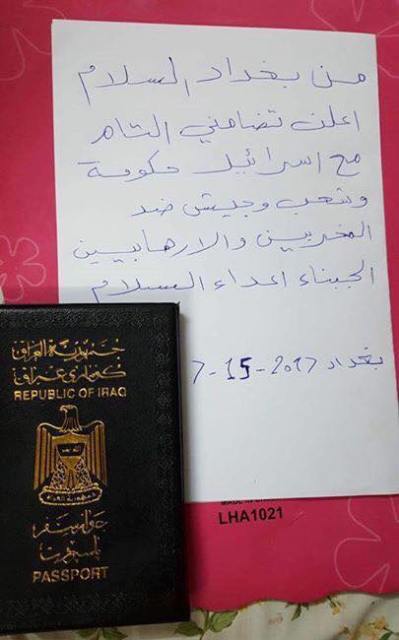 من بغداد السلام
اعلن تضامني التام
مع اسرائيل حكومة
وشعب وجيش ضد
المخربين والارهابيين
الجبناء اعداء السلام
بغداد 2017-15-7
جمهورية العراق
كۆماری عێراق
REPUBLIC OF IRAQ
جواز سفر
پاسپۆرت
PASSPORT
LHA1021